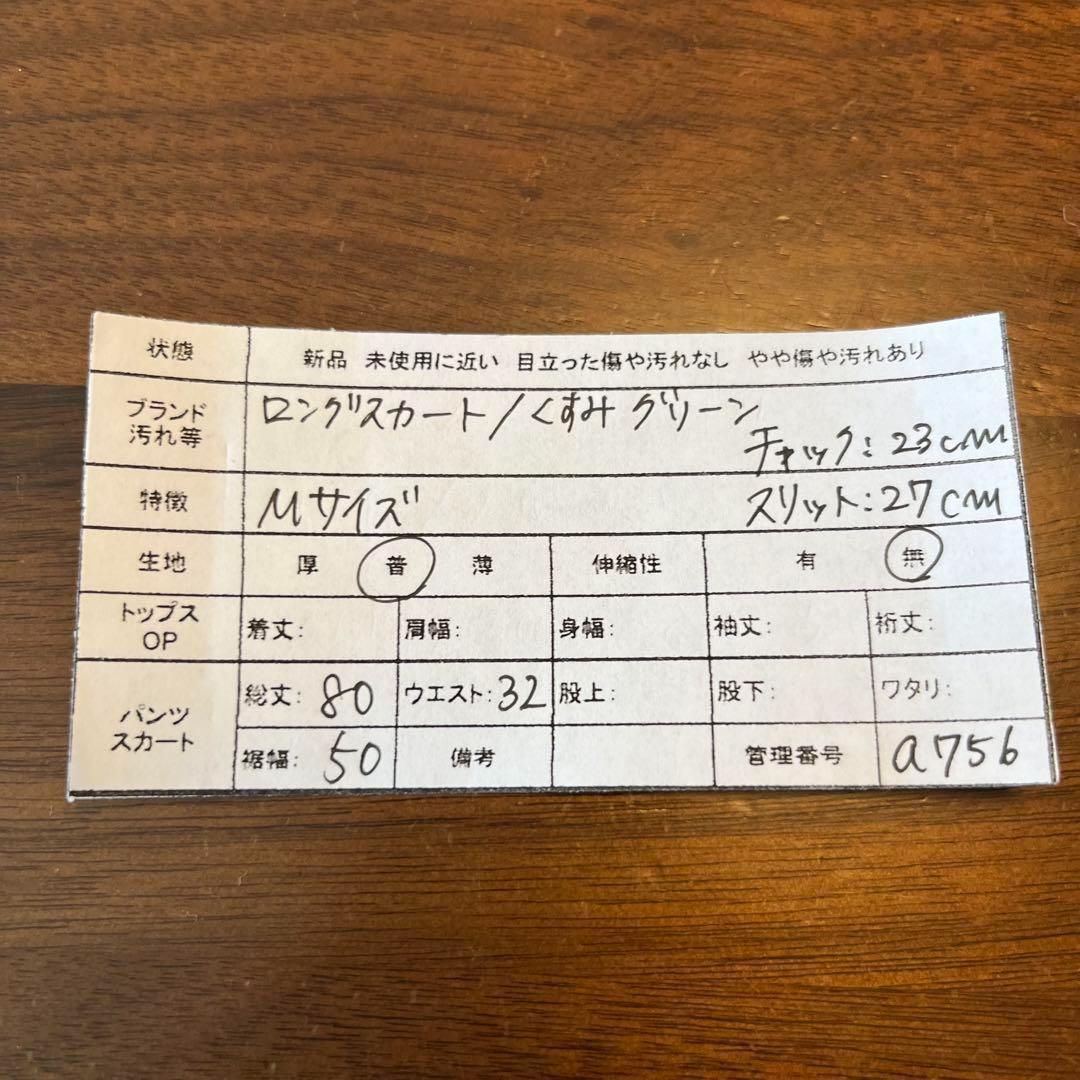 状態 新品 未使用に近い 目立った傷や汚れなし やや傷や汚れあり
ブランド 汚れ等 ロングスカート/くすみグリーン
チャック:23cm
特徴 Mサイズ スリット:27cm
生地 厚 普 薄 伸縮性 有 無
トップス OP 着丈: 肩幅: 身幅: 袖丈: 裄丈:
パンツ スカート 総丈:80 ウエスト:32 股上: 股下: ワタリ:
裾幅:50 備考 管理番号 a756